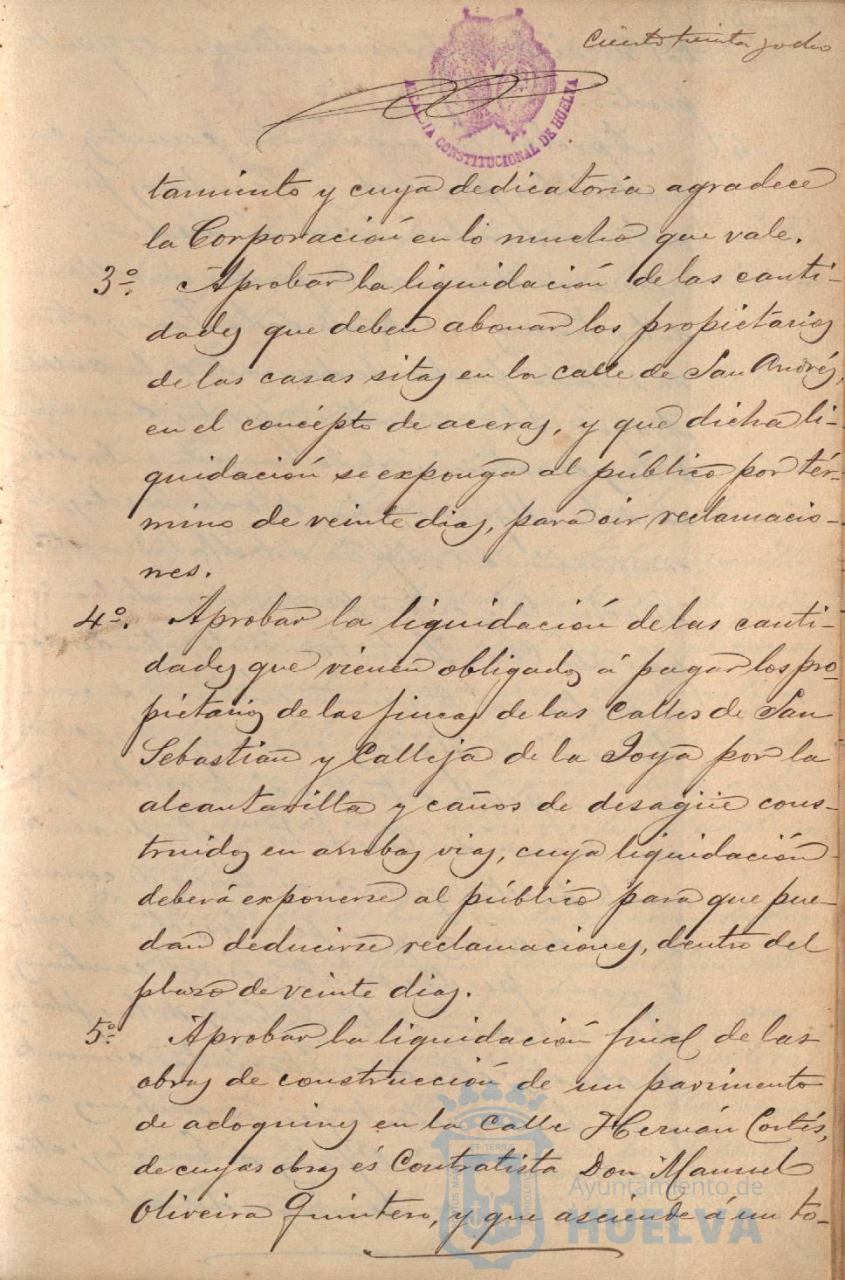 Ciento treinta y ocho
ALCALDIA CONSTITUCIONAL DE HUELVA
tamiento y cuya dedicatoria agradece
la Corporación en lo mucho que vale.
3º. Aprobar la liquidación de las canti-
dades que deben abonar los propietarios
de las casas sitas en la calle de San Andrés,
en el concépto de aceras, y que dicha li-
quidación se exponga al público por tér-
mino de veinte dias, para oir reclamacio-
nes.
4º. Aprobar la liquidación de las canti-
dades que vienen obligados á pagar los pro-
pietarios de las fincas de las Calles de San
Sebastián y Calleja de la Joya por la
alcantarilla y caños de desagüe cons-
truidos en ambas vias, cuya liquidación
deberá exponerse al público para que pue-
dan deducirse reclamaciones, dentro del
plazo de veinte dias.
5º. Aprobar la liquidación final de las
obras de construcción de un pavimento
de adoquines en la Calle Hernán Cortés,
de cuyas obras és Contratista Don Manuel
Oliveira Quintero, y que asciende á un to-
Ayuntamiento de
HUELVA